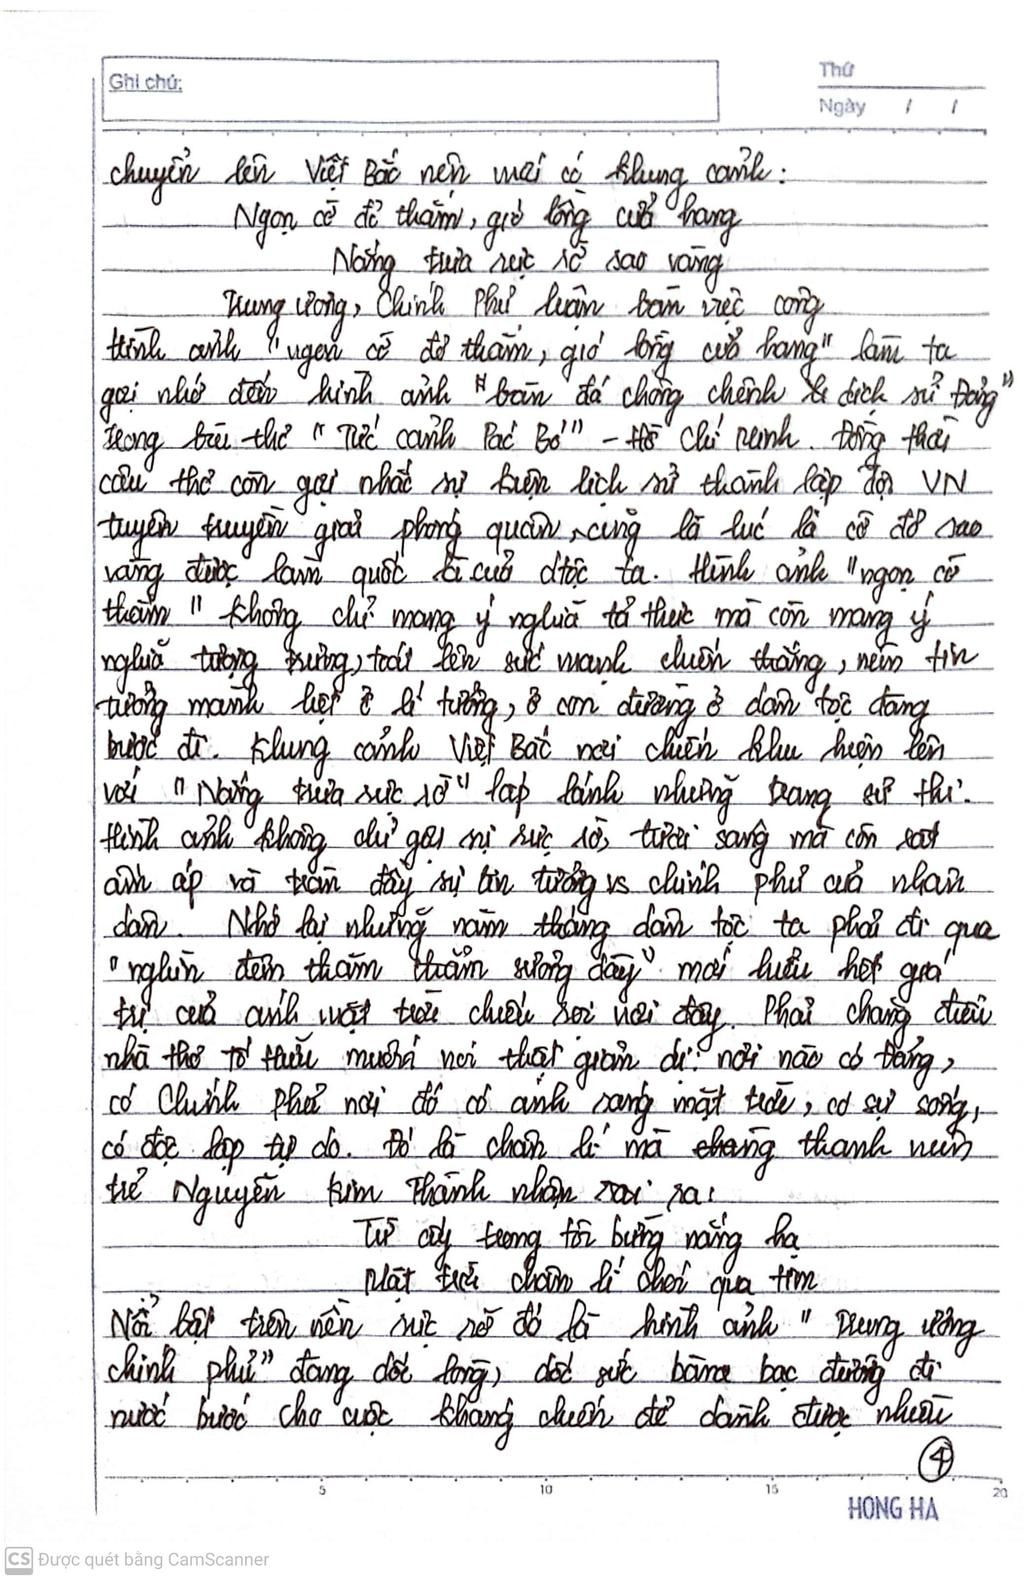 Ghi chú:
Thứ
Ngày / /
chuyển lên Việt Bắc nên mới có khung cảnh:
Ngọn cờ đỏ thắm, gió lồng cửa hang
Nắng trưa rực rỡ sao vàng
Trung ương, Chính Phủ luận bàn việc công
Hình ảnh "ngọn cờ đỏ thắm, gió lồng cửa hang" làm ta
gợi nhớ đến hình ảnh "bàn đá chông chênh dịch sử Đảng"
trong bài thơ "Tức cảnh Pác Bó" - Hồ Chí Minh. Đồng thời
câu thơ còn gợi nhắc sự kiện lịch sử thành lập đội VN
tuyên truyền giải phóng quân, cũng là lúc lá cờ đỏ sao
vàng được làm quốc kì của dtộc ta. Hình ảnh "ngọn cờ
thắm" không chỉ mang ý nghĩa tả thực mà còn mang ý
nghĩa tượng trưng, toát lên sức mạnh chiến thắng, niềm tin
tưởng mãnh liệt ở lí tưởng, ở con đường ở dân tộc đang
bước đi. Khung cảnh Việt Bắc nơi chiến khu hiện lên
với "Nắng trưa rực rỡ" lấp lánh những trang sử thi.
Hình ảnh không chỉ gợi sự rực rỡ, tươi sáng mà còn
ấm áp và tràn đầy sự tin tưởng vs chính phủ của nhân
dân. Nhớ lại những năm tháng dân tộc ta phải đi qua
"nghìn đêm thăm thẳm sương dày" mới hiểu hết giá
trị của ánh mặt trời chiếu rọi nơi đây. Phải chăng điều
nhà thơ Tố Hữu muốn nói thật giản dị: nơi nào có Đảng,
có Chính Phủ nơi đó có ánh sáng mặt trời, có sự sống,
có độc lập tự do. Đó là chân lí mà chàng thanh niên
trẻ Nguyễn Kim Thành nhận ra:
Từ ấy trong tôi bừng nắng hạ
Mặt trời chân lí chói qua tim
Nổi bật trên nền rực rỡ đó là hình ảnh "Trung ương
chính phủ" đang dốc lòng, dốc sức bàng bạc đường đi
nước bước cho cuộc kháng chiến để dành được nhiều
4
5 10 15 20
HONG HA
CS Được quét bằng CamScanner